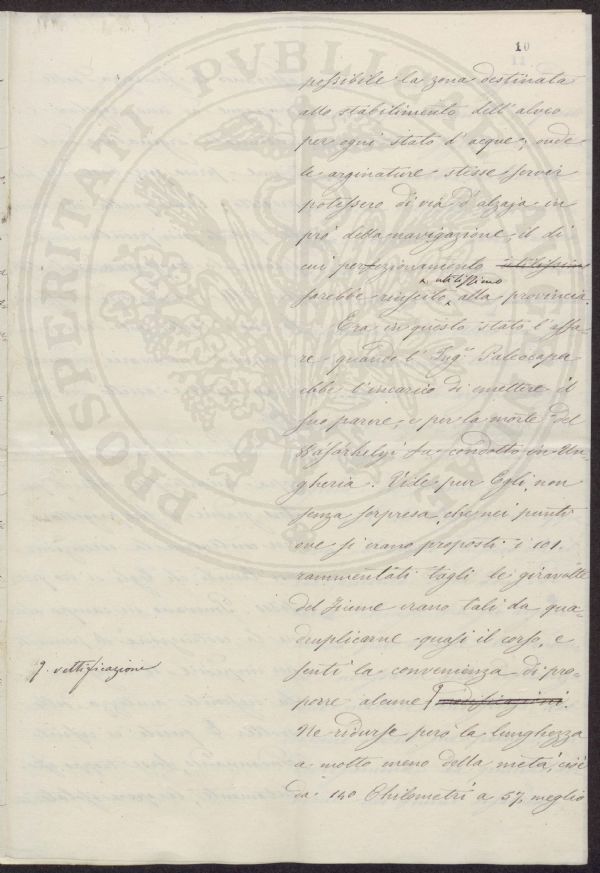 10
possibile la zona destinata
allo stabilimento dell'alveo
per ogni stato d'acque, onde
le arginature stesse servir
potessero di via d'alzaja in
prò della navigazione, il di
cui perfezionamento utilissimo
utilissimo
sarebbe riuscito alla provincia.
Era in questo stato l'affa-
re quando l'Ing.r Paleocapa
ebbe l'incarico di emettere il
suo parere, e per la morte del
Vásárhelyi fu condotto in Un-
gheria. Vide pur Egli, non
senza sorpresa, che nei punti
ove si erano proposti i 101.
rammentati tagli le giravolte
del fiume erano tali da qua-
druplicarne quasi il corso, e
sentì la convenienza di pro-
porre alcune modificazioni.
rettificazione
Ne ridusse però la lunghezza
a molto meno della metà, cioè
da 140 Chilometri a 57, meglio
PROSPERITATI PVBLICAE